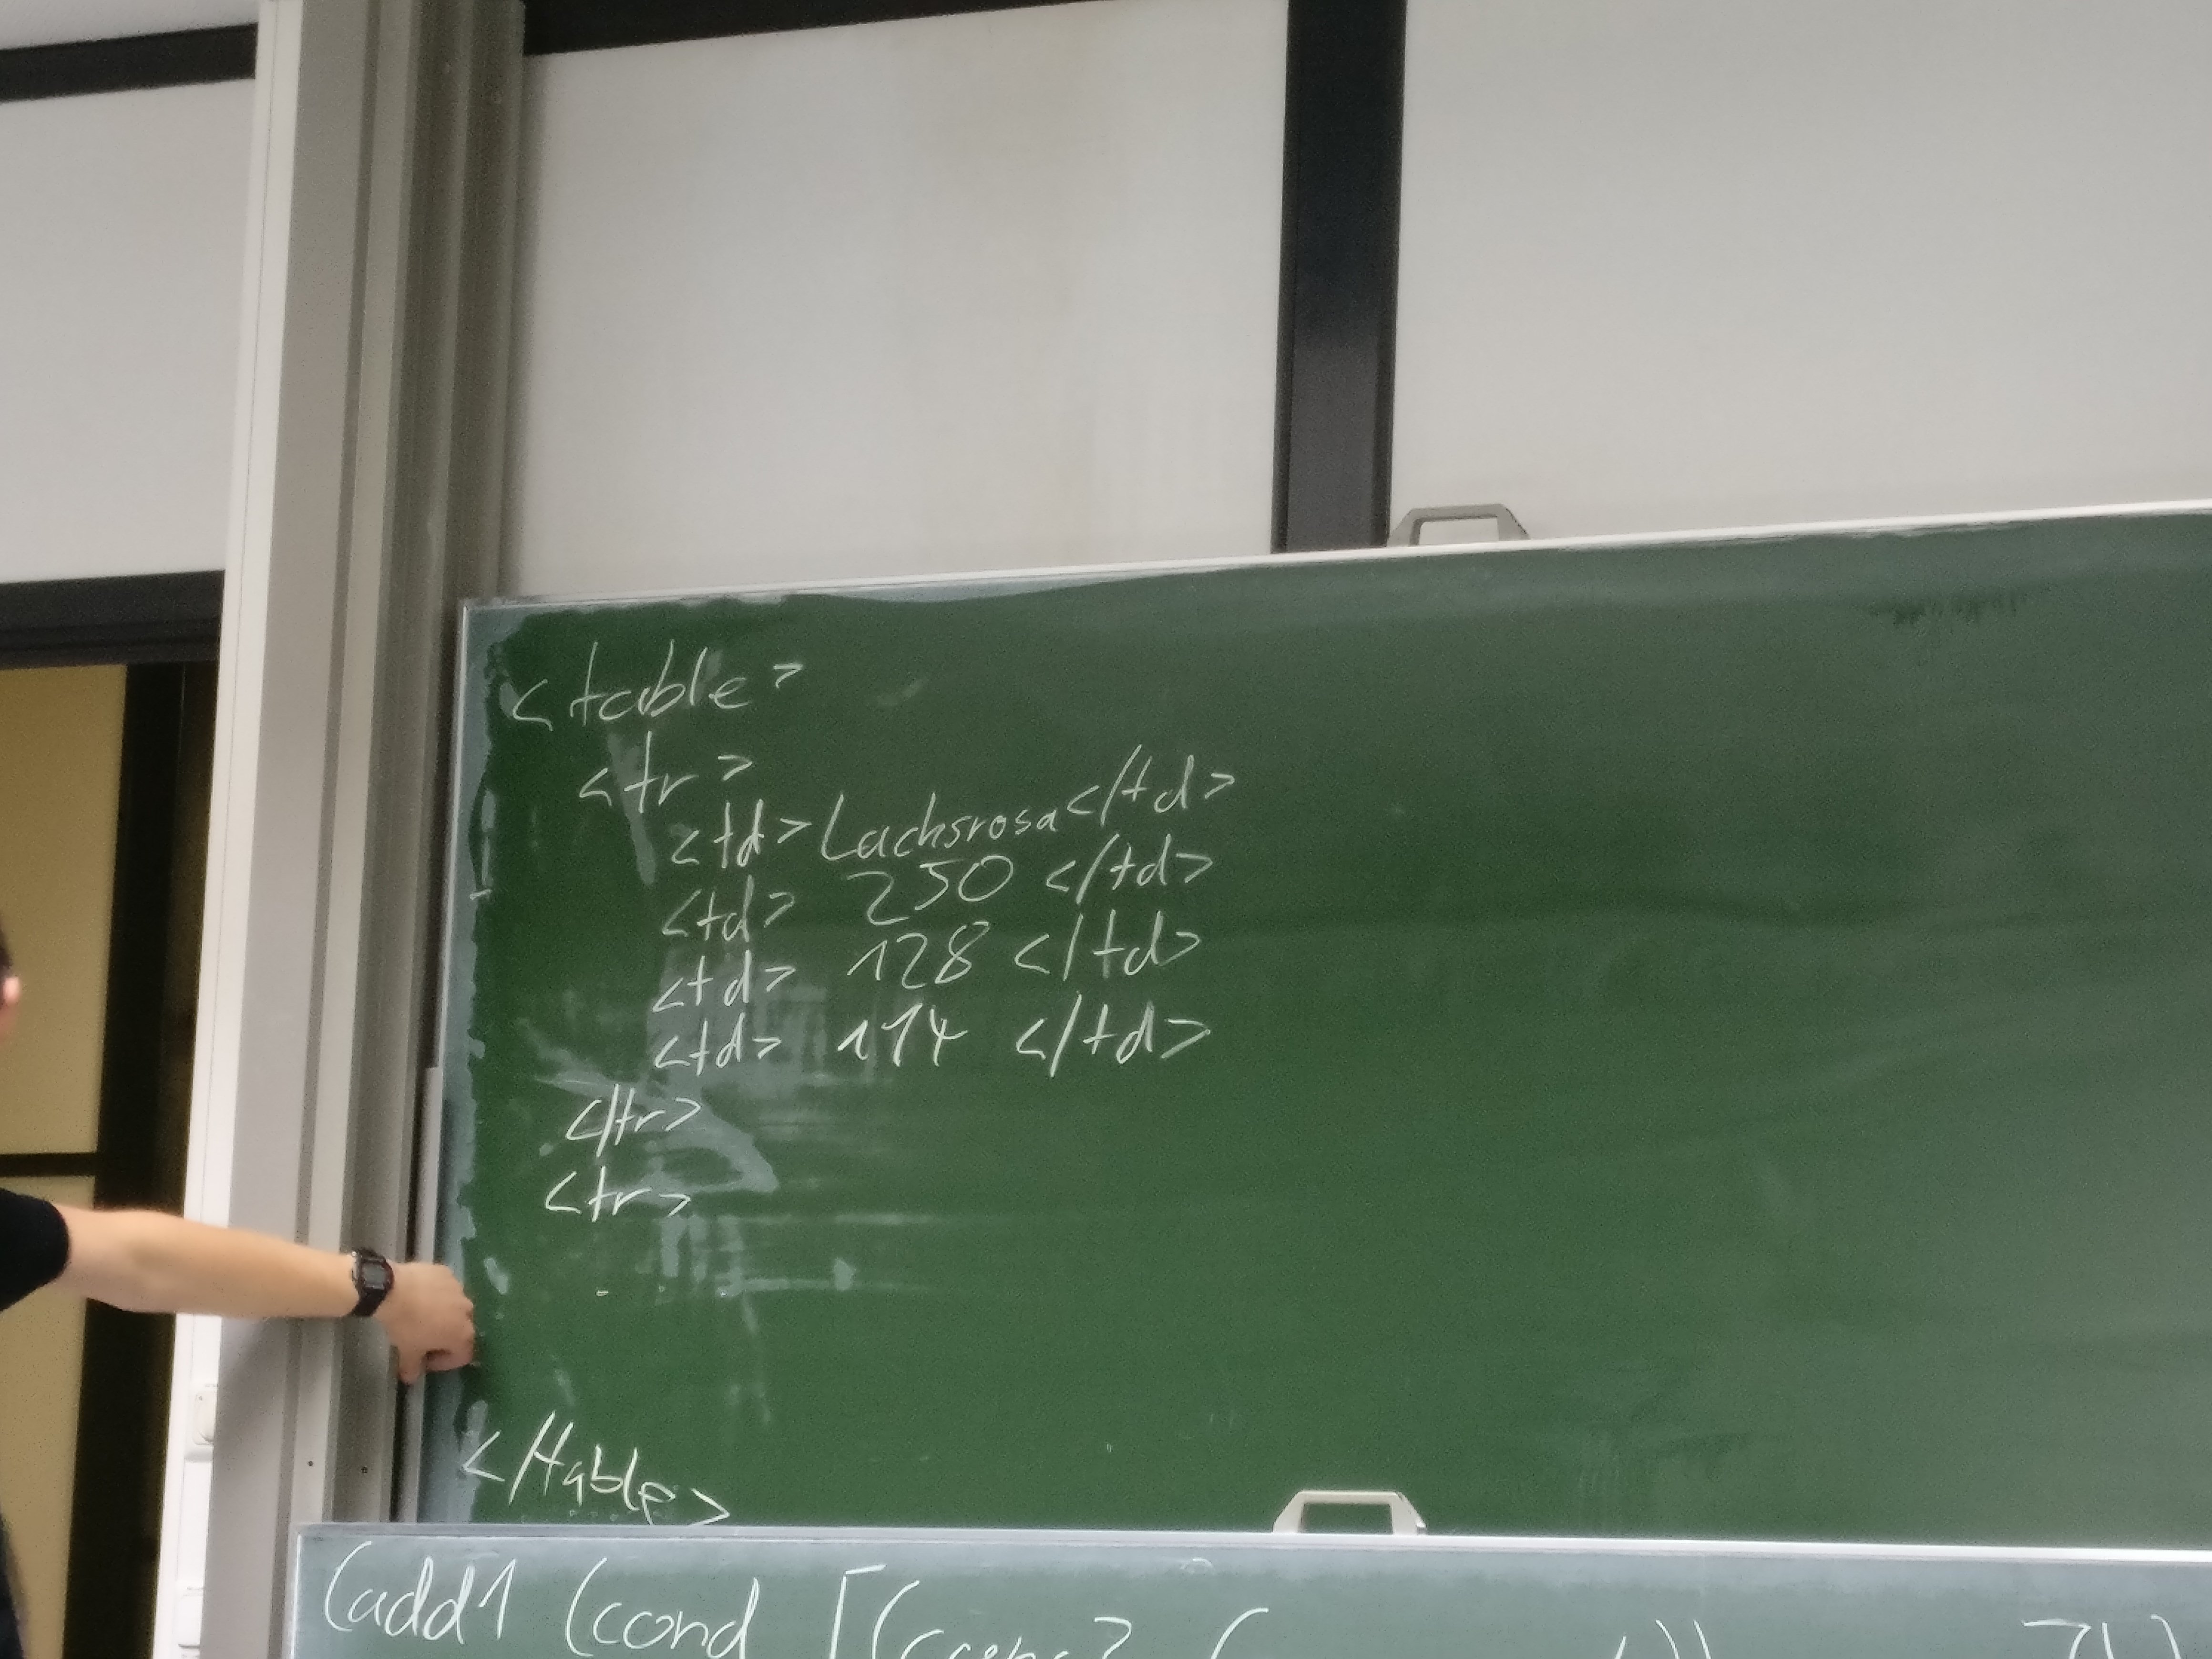 <table>
<tr>
<td>Lachsrosa</td>
<td> 250 </td>
<td> 128 </td>
<td> 114 </td>
</tr>
<tr>
</table>
(add1 (cond [(cons? (